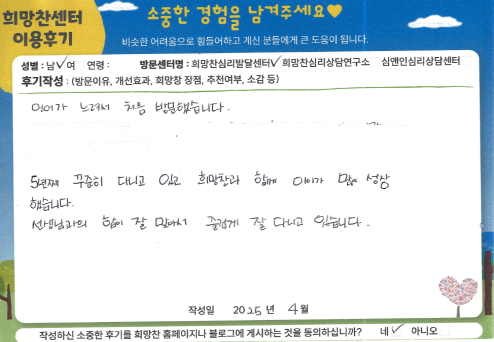 희망찬센터
이용후기
소중한 경험을 남겨주세요
비슷한 어려움으로 힘들어하고 계신 분들에게 큰 도움이 됩니다.
성별 : 남✓여 연령 : 방문센터명 : 희망찬심리발달센터✓희망찬심리상담연구소 심앤인심리상담센터
후기작성 : (방문이유, 개선효과, 희망찬 장점, 추천여부, 소감 등)
언어가 느려서 처음 방문했습니다.
5년째 꾸준히 다니고 있고 희망찬과 함께 아이가 많이 성장
했습니다.
선생님과의 합이 잘 맞아서 즐겁게 잘 다니고 있습니다.
작성일 2025년 4월
작성하신 소중한 후기를 희망찬 홈페이지나 블로그에 게시하는 것을 동의하십니까? 네✓ 아니오